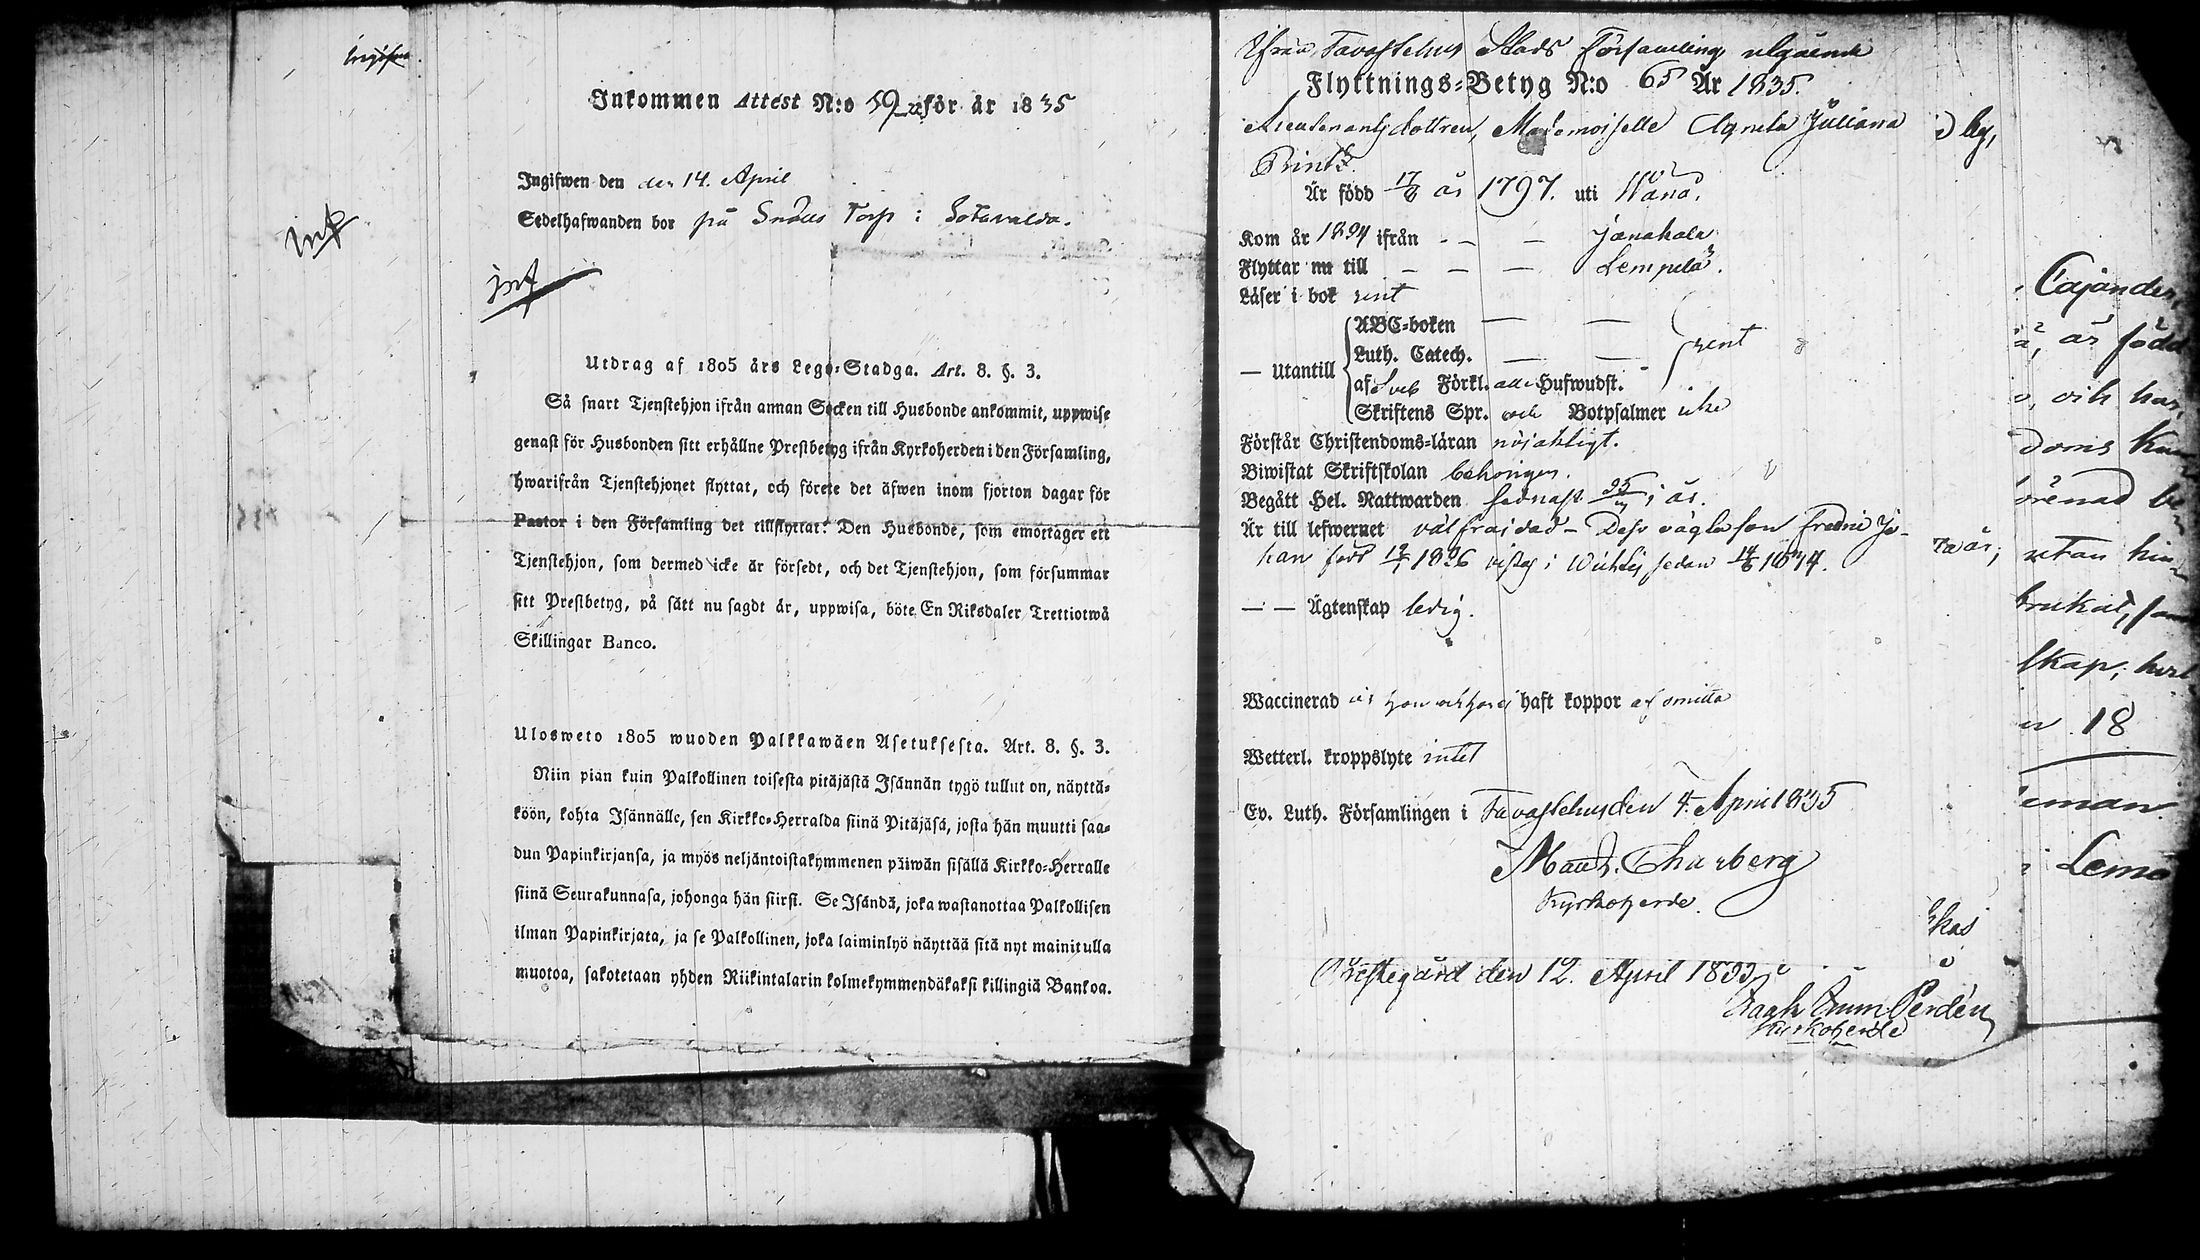 Inkommen Attest N:o 59 för år 1835
Ingifwen den den 14. April
Sedelhafwanden bor på Torp i Sotavalda.
int
int
Utdrag af 1805 års Lego-Stadga. Art. 8. §. 3.
Så snart Tjenstehjon ifrån annan Socken till Husbonde ankommit, uppwise
genast för Husbonden sitt erhållne Prestbetyg ifrån Kyrkoherden i den Församling,
hwarifrån Tjenstehjonet flyttat, och förete det äfwen inom fjorton dagar för
Pastor i den Församling det tillflyttat. Den Husbonde, som emottager ett
Tjenstehjon, som dermed icke är försedt, och det Tjenstehjon, som försummar
sitt Prestbetyg, på sätt nu sagdt är, uppwisa, böte En Riksdaler Trettiotwå
Skillingar Banco.
Ulosweto 1805 wuoden Palkkawäen Asetuksesta. Art. 8. §. 3.
Niin pian kuin Palkollinen toisesta pitäjästä Isännän tygö tullut on, näyttä-
köön, kohta Isännälle, sen Kirkko-Herralda siinä Pitäjäsä, josta hän muutti saa-
dun Papinkirjansa, ja myös neljäntoistakymmenen päiwän sisällä Kirkko-Herralle
siinä Seurakunnasa, johonga hän siirsi. Se Isändä, joka wastanottaa Palkollisen
ilman Papinkirjata, ja se Palkollinen, joka laiminlyö näyttää sitä nyt mainitulla
muotoa, sakotetaan yhden Riikintalarin kolmekymmendäkaksi killingiä Bankoa.
Ifrån Tavastehus Stads Församling utgående
Flyttnings-Betyg N:o 65 År 1835.
Lieutenantsdottren, Mademoiselle Agneta Juliana
Printz.
Är född 17/8 år 1797. uti Wånå.
Kom år 1834 ifrån - - — Janakala
Flyttar nu till — — — Lempelä.
Läser i bok rent
— Utantill ABC-boken — —
Luth. Catech. — — rent
af Sveb Förkl. alla Hufwudst.
Skriftens Spr. och Botpsalmer icke
Förstår Christendoms-läran nöjaktigt.
Biwistat Skriftskolan behörigen.
Begått Hel. Nattwarden sednast i år.
Är till lefwernet välfrejdad - Dess oägta son Jo-
han född 1826 sedan 1834.
— — Ägtenskap ledig.
Waccinerad är hon haft koppor af smitta
Wetterl. kroppslyte intet
Ev. Luth. Församlingen i Tavastehus den 4. April 1835
Kyrkoherde.
Prestegård den 12. April
Kyrkoherde
by,
Cajander,
å, är född
och har
doms
utan hin-
brukat,
skap,
18
i Leme